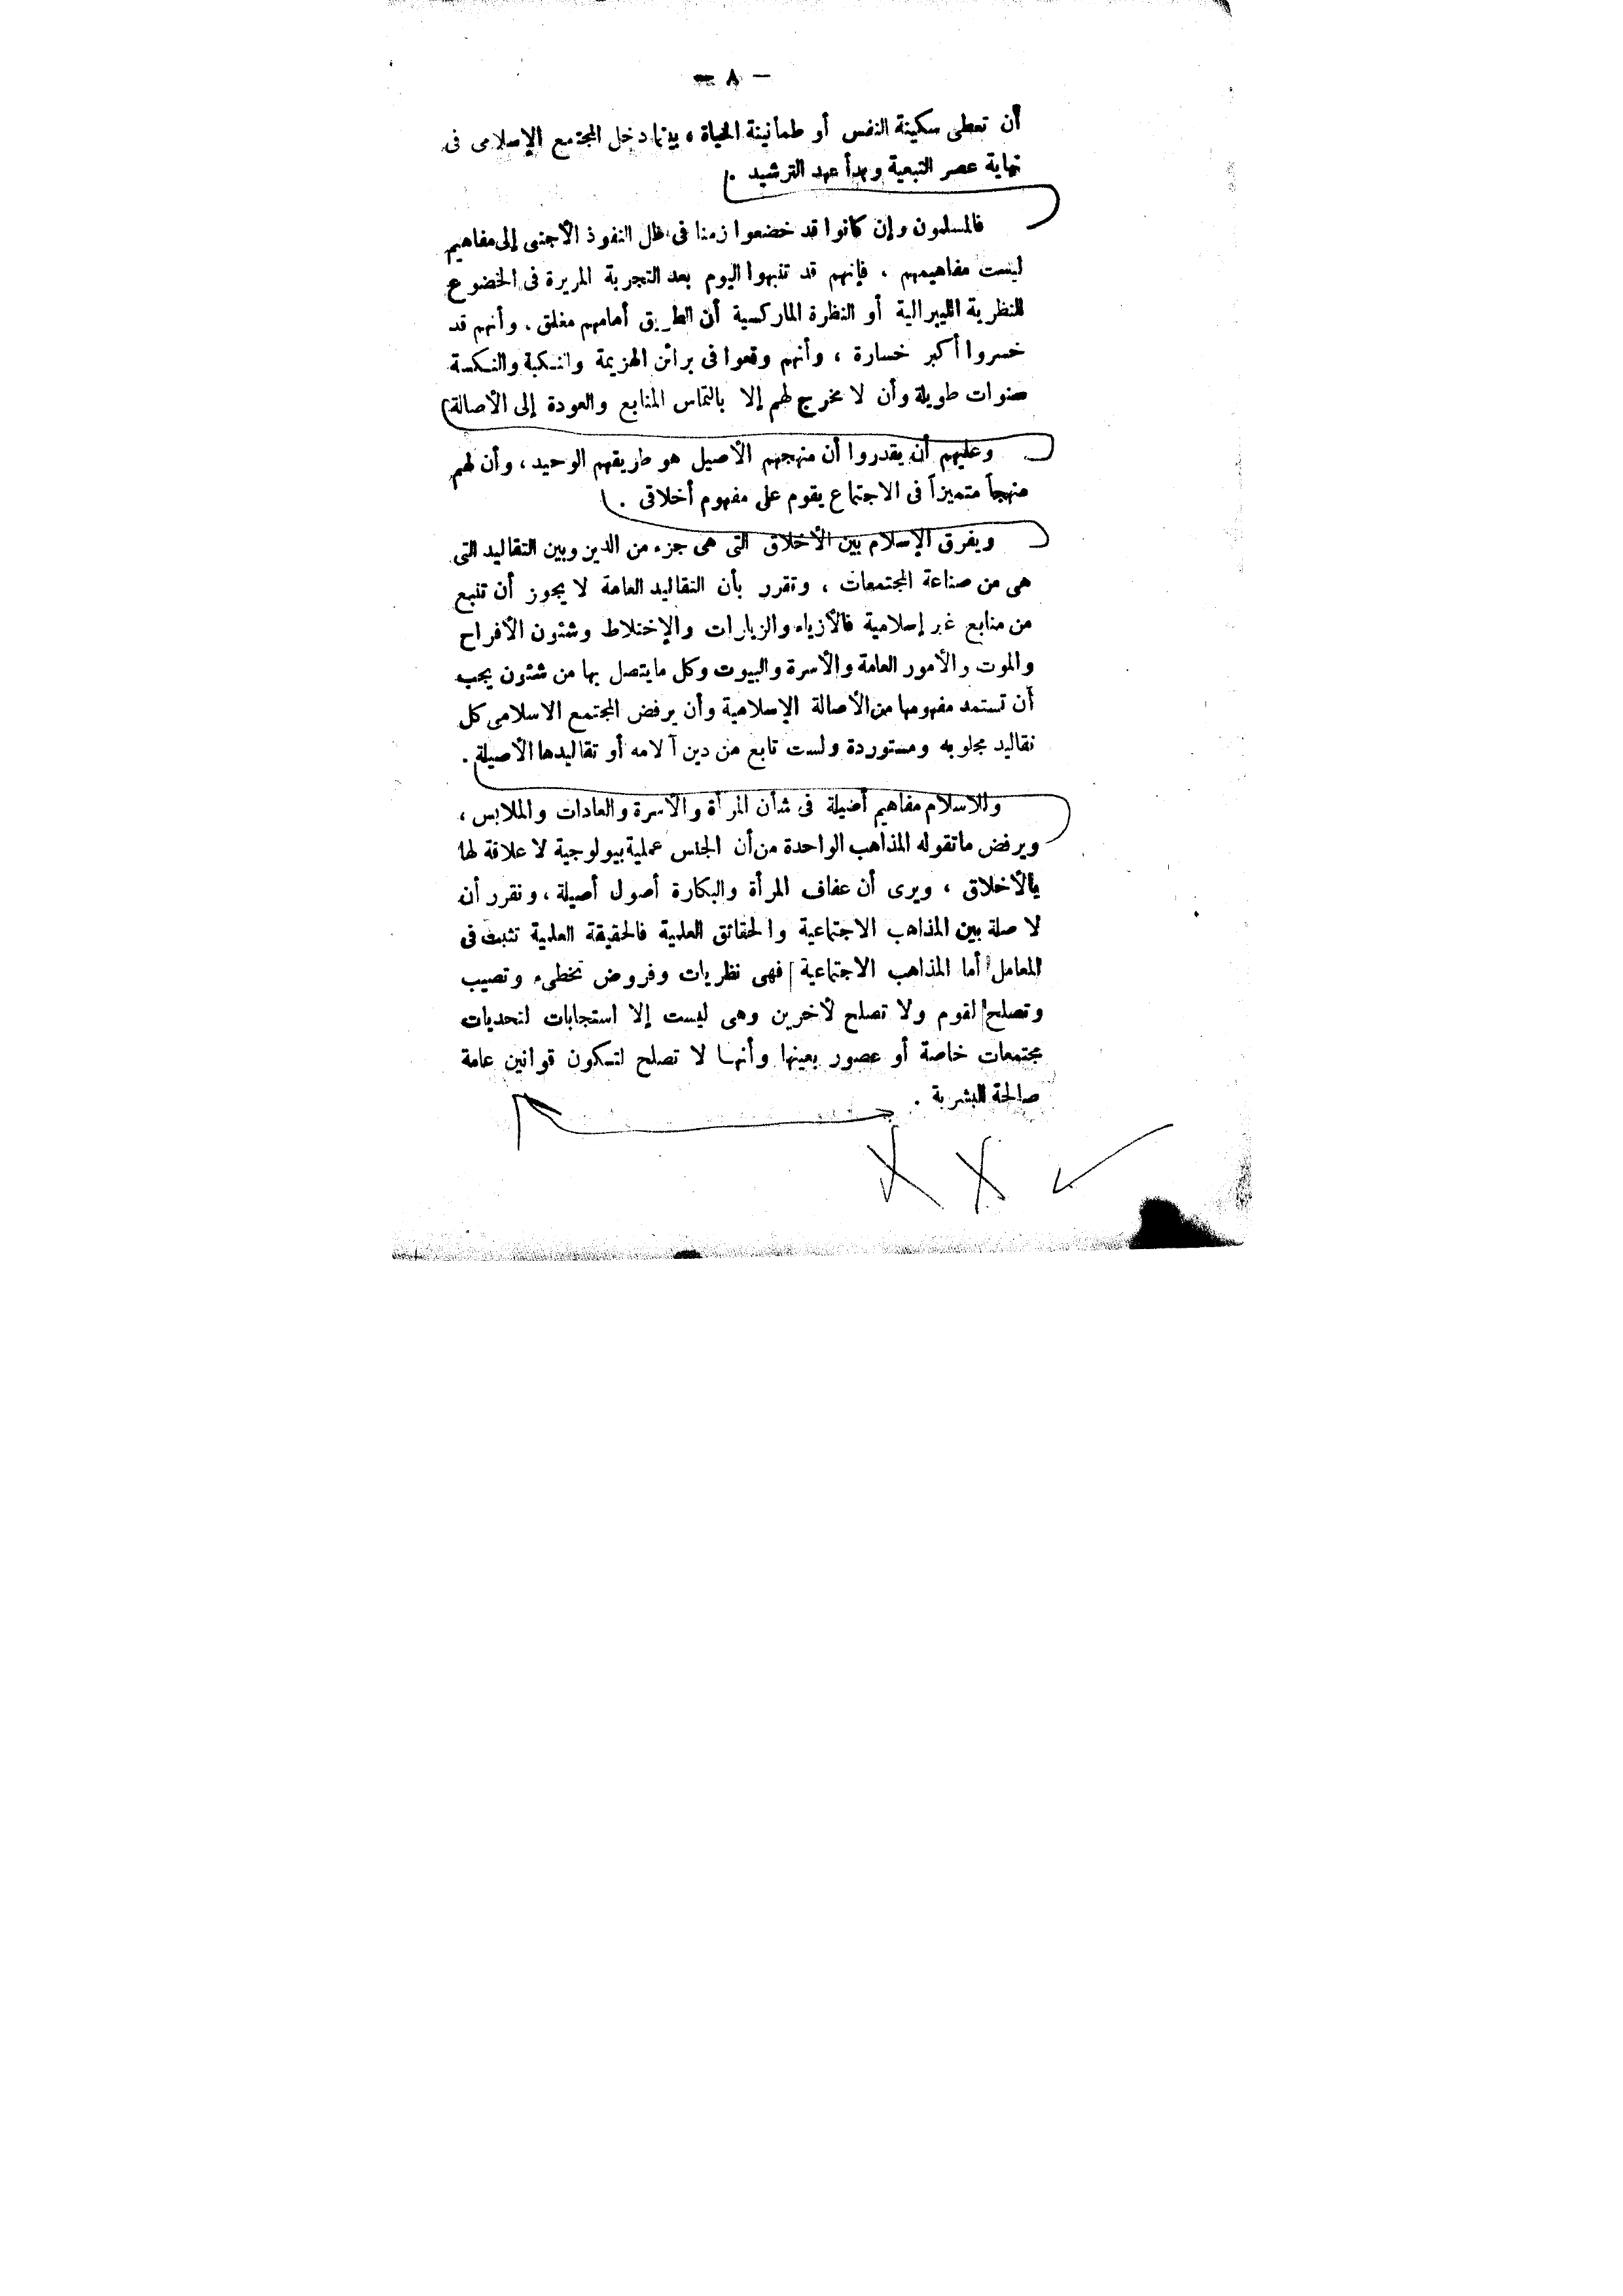 — ٨ —
أن تعطى سكينة النفس أو طمأنينة الحياة ، بينما دخل المجتمع الإسلامى فى
نهاية عصر التبعية وبدأ عهد الترشيد .
فالمسلمون وإن كانوا قد خضعوا زمنا فى ظل النفوذ الأجنبى إلى مفاهيم
ليست مفاهيمهم ، فإنهم قد تنبهوا اليوم بعد التجربة المريرة فى الخضوع
للنظرية الليبرالية أو النظرة الماركسية أن الطريق أمامهم مغلق ، وأنهم قد
خسروا أكبر خسارة ، وأنهم وقعوا فى براثن الهزيمة والنكبة والنكسة
سنوات طويلة وأن لا مخرج لهم إلا بالتماس المنابع والعودة إلى الأصالة
وعليهم أن يقدروا أن منهجهم الأصيل هو طريقهم الوحيد ، وأن لهم
منهجاً متميزاً فى الاجتماع يقوم على مفهوم أخلاقى .
ويفرق الإسلام بين الأخلاق التى هى جزء من الدين وبين التقاليد التى
هى من صناعة المجتمعات ، وتقرر بأن التقاليد العامة لا يجوز أن تنبع
من منابع غير إسلامية فالأزياء والزيارات والإختلاط وشئون الأفراح
والموت والأمور العامة والأسرة والبيوت وكل ما يتصل بها من شئون يجب
أن تستمد مفهومها من الأصالة الإسلامية وأن يرفض المجتمع الاسلامى كل
تقاليد مجلوبه ومستوردة ولست تابع من دين آلامه أو تقاليدها الأصيلة .
وللاسلام مفاهيم أضيلة فى شأن المرأة والأسرة والعادات والملابس ،
ويرفض ما تقوله المذاهب الواحدة من أن الجنس عملية بيولوجية لا علاقة لها
بالأخلاق ، ويرى أن عفاف المرأة والبكارة أصول أصيلة ، ونقرر أن
لا صلة بين المذاهب الاجتماعية والحقائق العلمية فالحقيقة العلمية تثبت فى
المعامل أما المذاهب الاجتماعية فهى نظريات وفروض تخطىء وتصيب
وتصلح لقوم ولا تصلح لأخرين وهى ليست إلا استجابات لتحديات
مجتمعات خاصة أو عصور بعينها وأنها لا تصلح لتكون قوانين عامة
صالحة للبشرية .